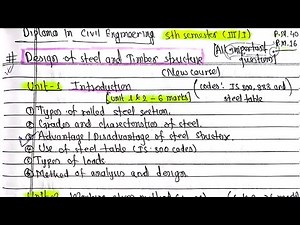 Diploma In Civil Engineering 5th semester (III/I)
# Design of steel and Timber structure (All important questions)
(New course)
Unit-1 Introduction (codes: IS 800, 883 and steel table
(unit 1 & 2 - 6 marks)
① Types of rolled steel section.
② Grades and characteristics of steel.
③ Advantage / Disadvantage of steel structure.
④ Use of steel table (IS: 800 codes)
⑤ Types of loads
⑥ Method of analysis and design